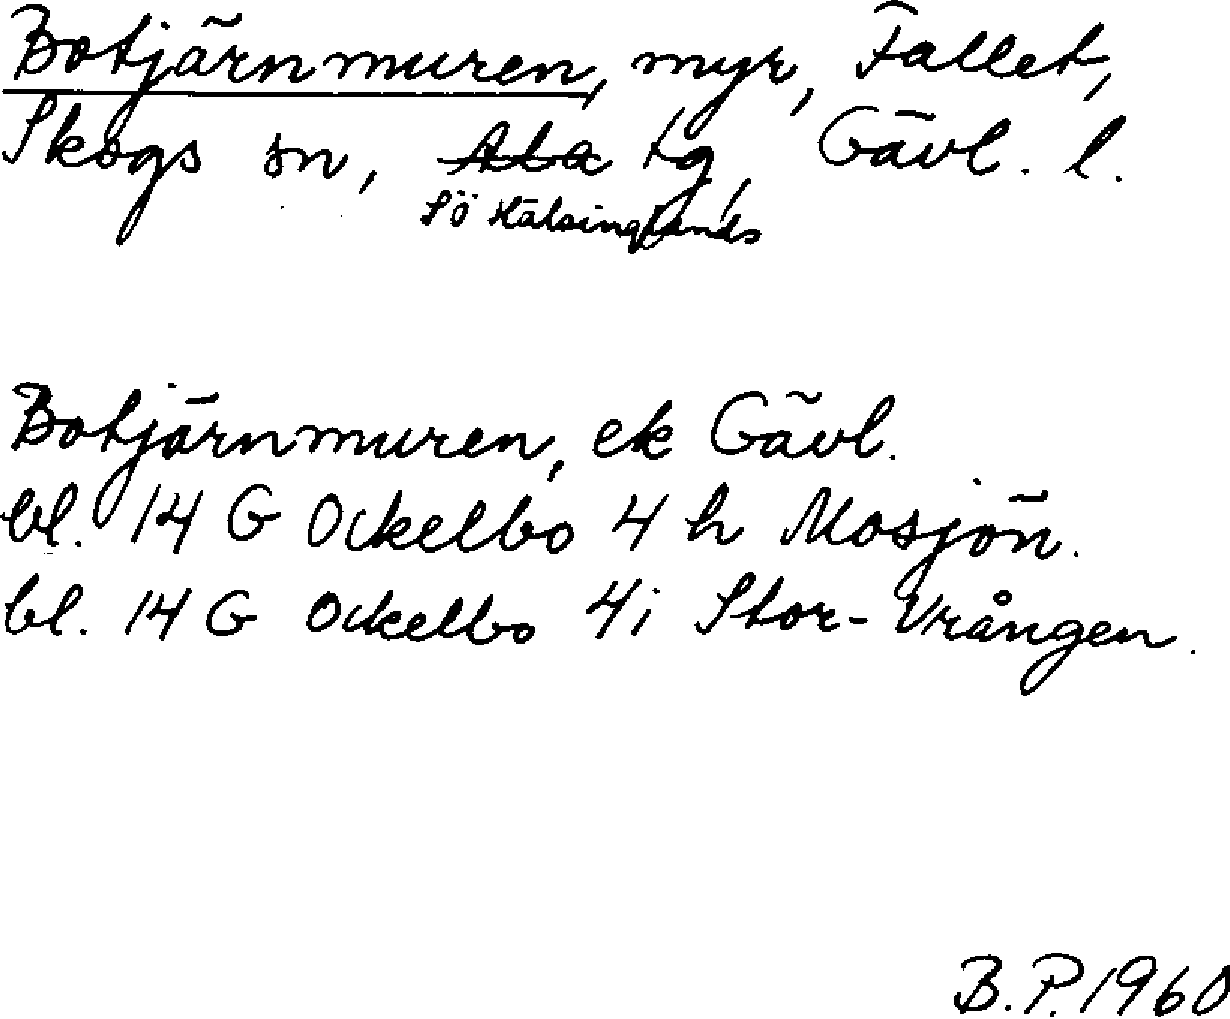 Botjärnmuren, myr, Fallet,
Skogs sn, Ala tg, Gävl. l.
Sö Hälsinglands
Botjärnmuren, ek Gävl.
bl. 14 G Ockelbo 4 h Mosjön.
bl. 14 G Ockelbo 4 i Stor-Vrången.
B.P. 1960